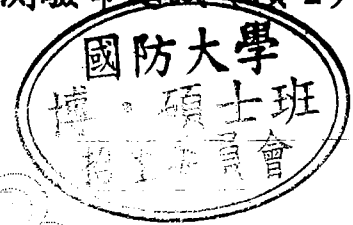 測驗
國防大學
博、碩士班
招生委員會